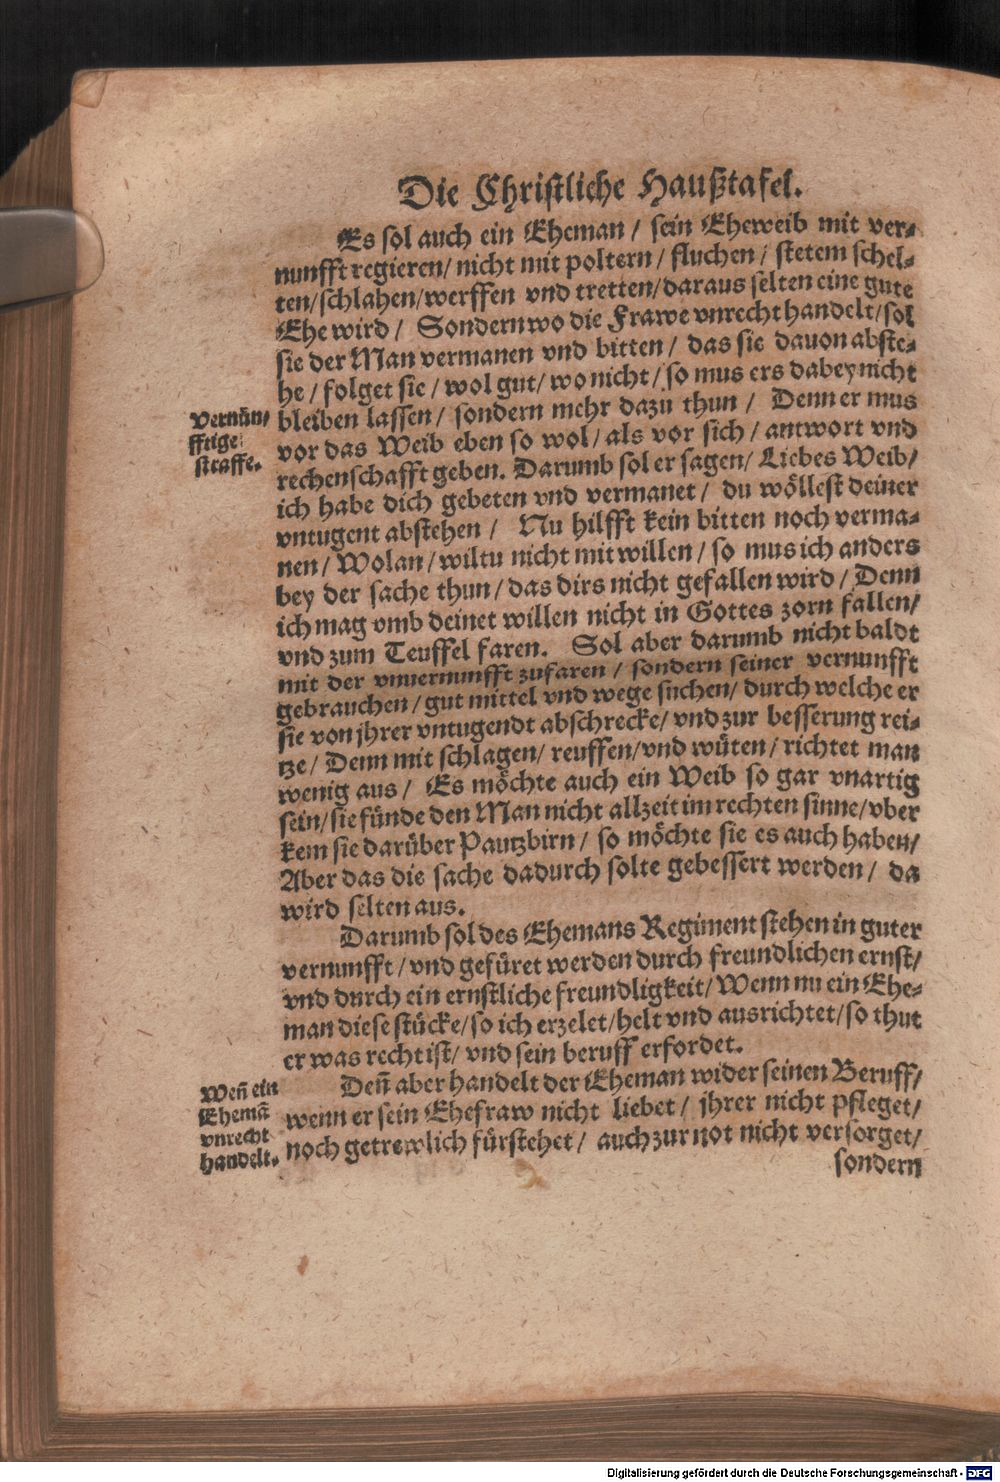 Die Christliche Haußtafel.
Es sol auch ein Eheman / sein Eheweib mit ver-
nunfft regieren / nicht mit poltern / fluchen / stetem schel-
ten / schlahen / werffen vnd tretten / daraus selten eine gute
Ehe wird / Sondern wo die Frawe vnrecht handelt / sol
sie der Man vermanen vnd bitten / das sie dauon abste-
he / folget sie / wol gut / wo nicht / so mus ers dabey nicht
bleiben lassen / sondern mehr dazu thun / Denn er mus
vor das Weib eben so wol / als vor sich / antwort vnd
rechenschafft geben. Darumb sol er sagen / Liebes Weib /
ich habe dich gebeten vnd vermanet / du wöllest deiner
vntugent abstehen / Nu hilfft kein bitten noch verma-
nen / Wolan / wiltu nicht mit willen / so mus ich anders
bey der sache thun / das dirs nicht gefallen wird / Denn
ich mag vmb deinet willen nicht in Gottes zorn fallen /
vnd zum Teuffel faren. Sol aber darumb nicht baldt
mit der vnuernunfft zufaren / sondern seiner vernunfft
gebrauchen / gut mittel vnd wege suchen / durch welche er
sie von jhrer vntugendt abschrecke / vnd zur besserung rei-
tze / Denn mit schlagen / reuffen / vnd wüten / richtet man
wenig aus / Es möchte auch ein Weib so gar vnartig
sein / sie fünde den Man nicht allzeit im rechten sinne / vber
kem sie darüber Pautzbirn / so möchte sie es auch haben /
Aber das die sache dadurch solte gebessert werden / da
wird selten aus.
Darumb sol des Ehemans Regiment stehen in guter
vernunfft / vnd gefüret werden durch freundlichen ernst /
vnd durch ein ernstliche freundligkeit / Wenn nu ein Ehe-
man diese stücke / so ich erzelet / helt vnd ausrichtet / so thut
er was recht ist / vnd sein beruff erfordet.
Deñ aber handelt der Eheman wider seinen Beruff /
wenn er sein Ehefraw nicht liebet / jhrer nicht pfleget /
noch getrewlich fürstehet / auch zur not nicht versorget /
sondern
Vernün-
fftige
straffe.
Weñ ein
Ehemã
vnrecht
handelt.
Digitalisierung gefördert durch die Deutsche Forschungsgemeinschaft - DFG